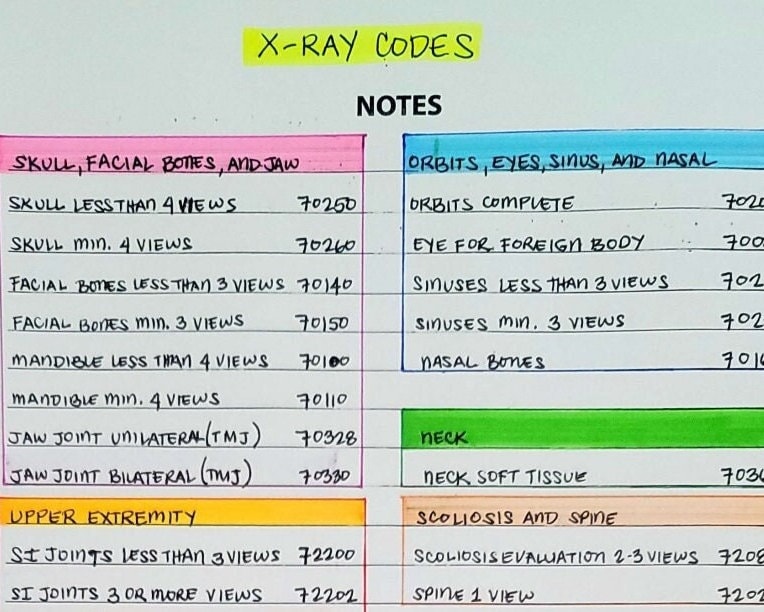 X-RAY CODES
NOTES
SKULL, FACIAL BONES, AND JAW
SKULL LESS THAN 4 VIEWS 70250
SKULL MIN. 4 VIEWS 70260
FACIAL BONES LESS THAN 3 VIEWS 70140
FACIAL BONES MIN. 3 VIEWS 70150
MANDIBLE LESS THAN 4 VIEWS 70100
MANDIBLE MIN. 4 VIEWS 70110
JAW JOINT UNILATERAL (TMJ) 70328
JAW JOINT BILATERAL (TMJ) 70330
UPPER EXTREMITY
SI JOINTS LESS THAN 3 VIEWS 72200
SI JOINTS 3 OR MORE VIEWS 72202
ORBITS, EYES, SINUS, AND NASAL
ORBITS COMPLETE 7020
EYE FOR FOREIGN BODY 700
SINUSES LESS THAN 3 VIEWS 702
SINUSES MIN. 3 VIEWS 702
NASAL BONES 701
NECK
NECK SOFT TISSUE 703
SCOLIOSIS AND SPINE
SCOLIOSIS EVALUATION 2-3 VIEWS 7208
SPINE 1 VIEW 7202